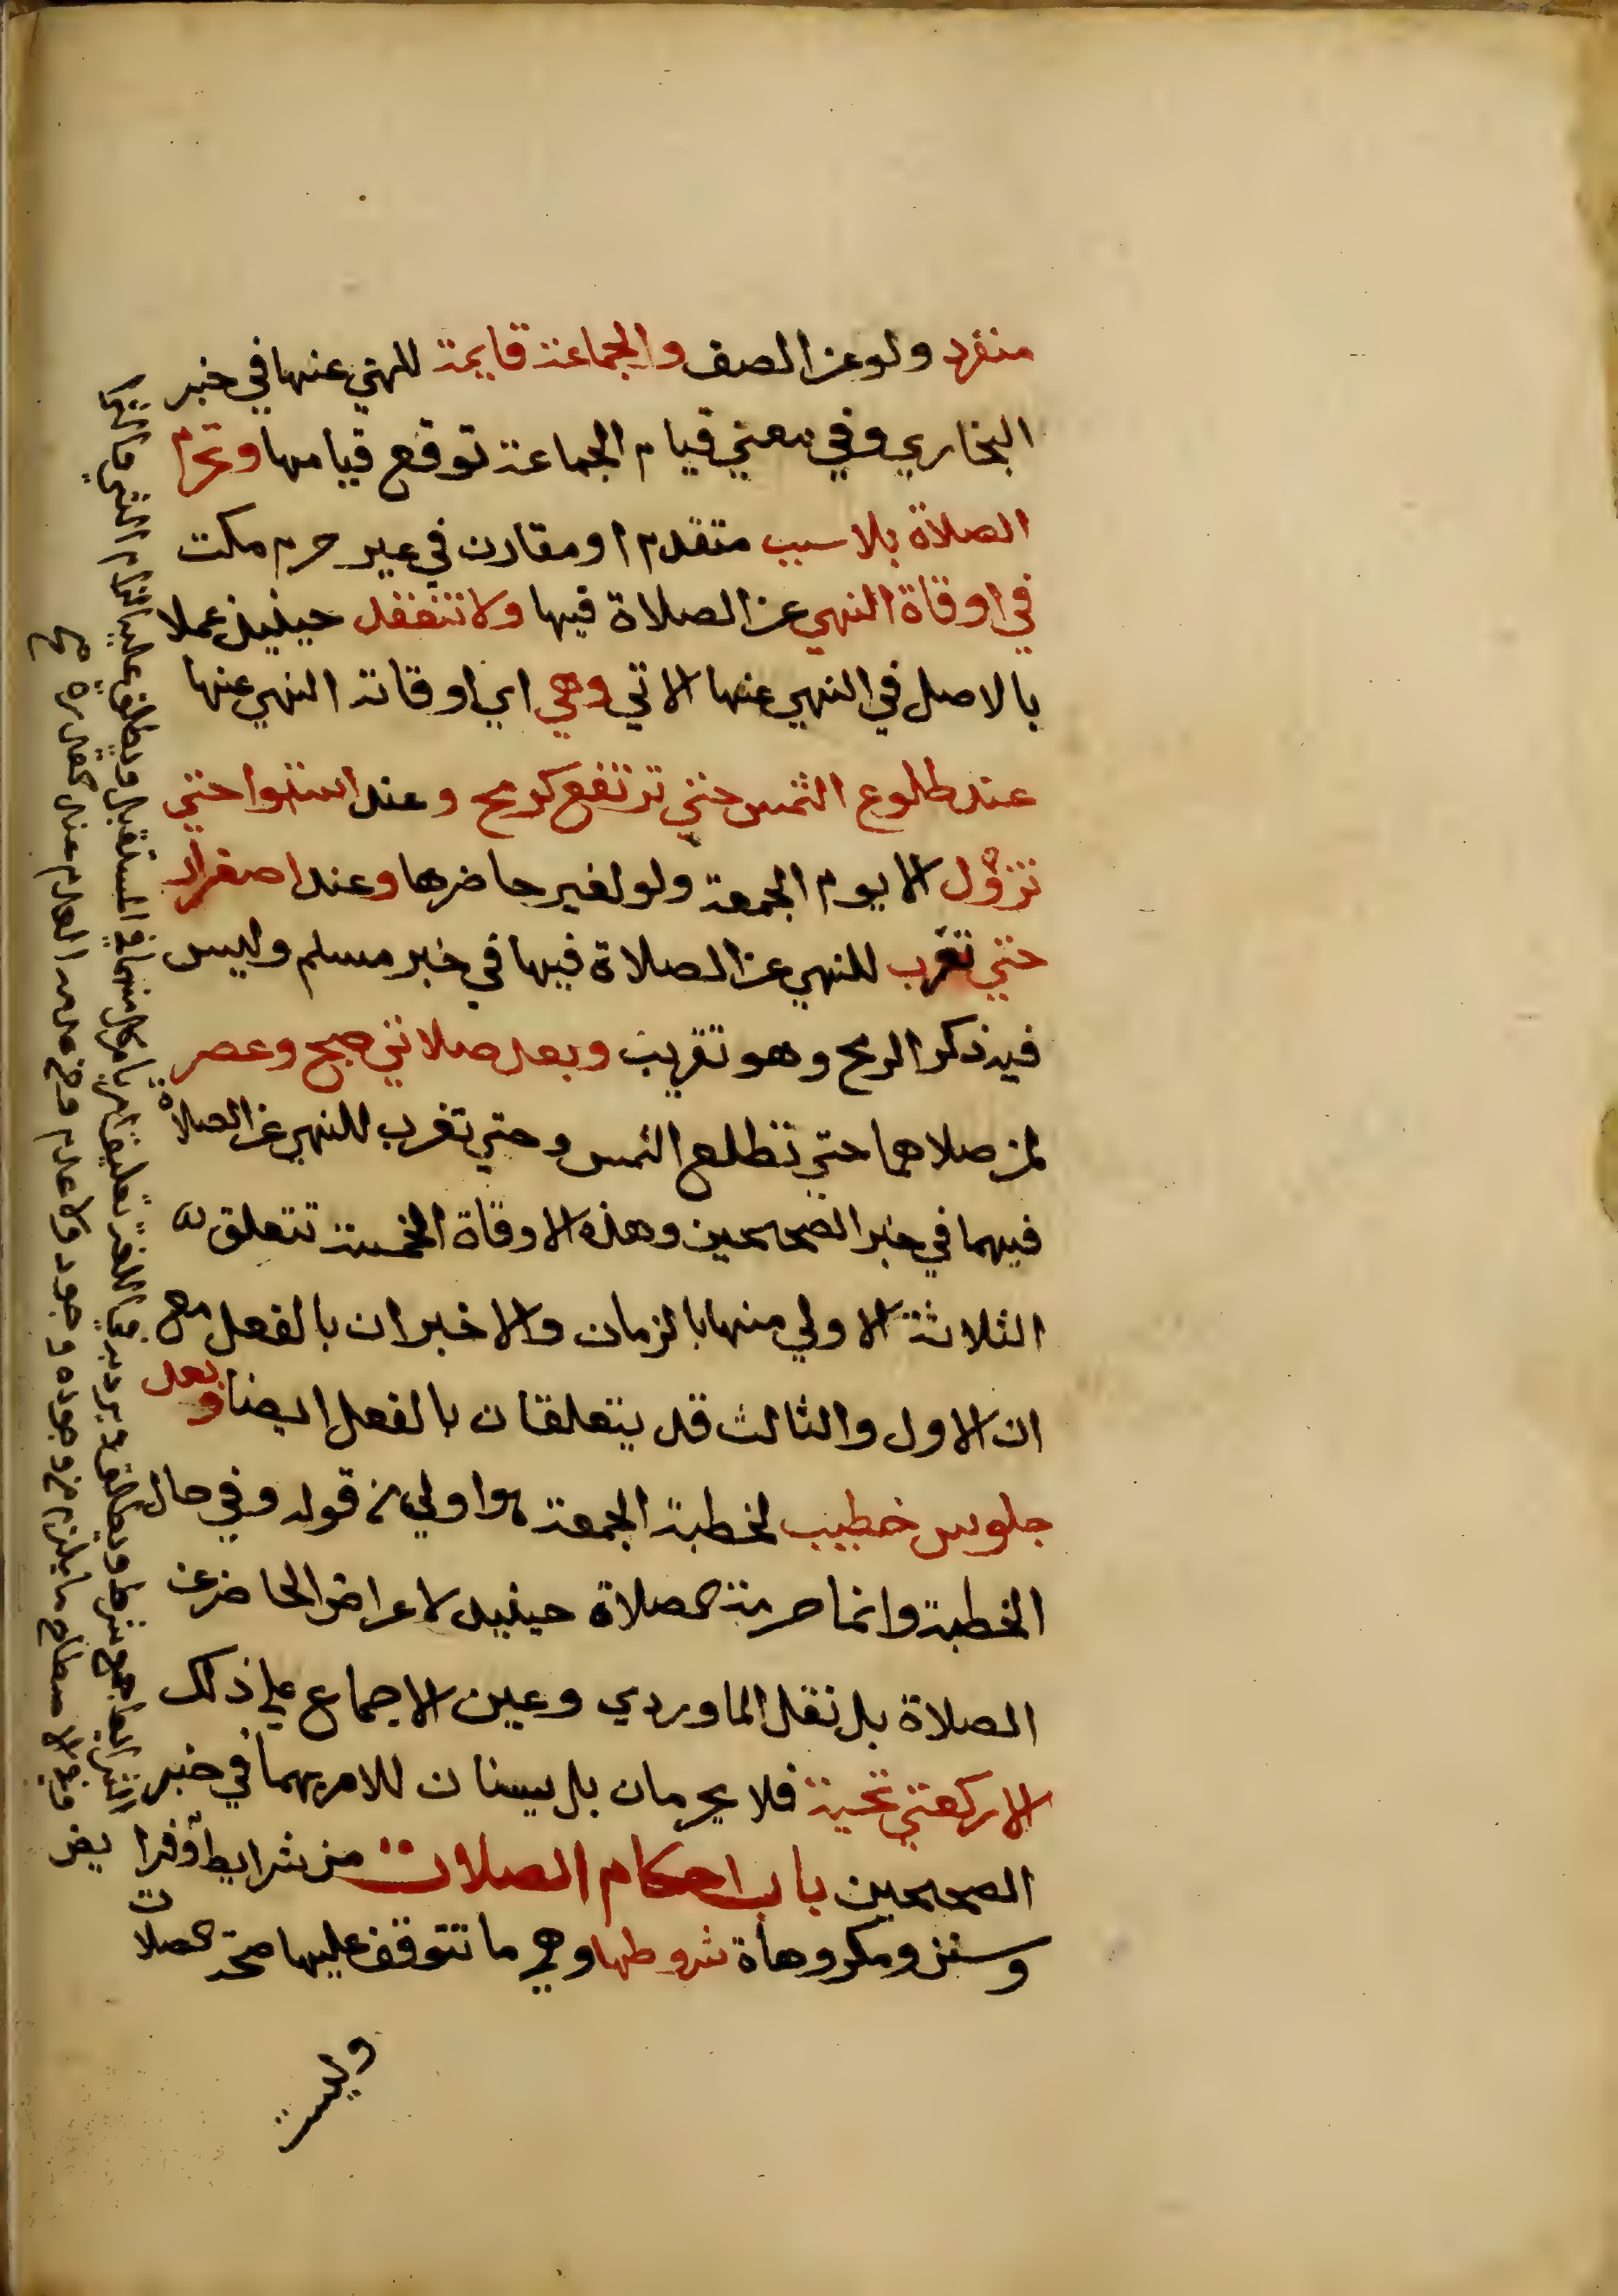 منفرد ولو عن الصف والجماعة قايمة للنهي عنها في خبر
البخاري وفي معني قيام الجماعة توقع قيامها وتحرم
الصلاة بلا سبب متقدم او مقارن في غير حرم مكت
في اوقاة النهي عن الصلاة فيها ولا تنعقد حينيذ عملا
بالاصل في النهي عنها الاتي وهي اي اوقات النهي عنها
عند طلوع الشمس حتي ترتفع كرمح وعند استوا حتي
تزول الا يوم الجمعة ولو لغير حاضرها وعند اصفرار
حتي تغرب للنهي عن الصلاة فيها في خبر مسلم وليس
فيه ذكر الرمح وهو تقريب وبعد صلاتي صبح وعصر
لمن صلاهما حتي تطلع الشمس وحتي تغرب للنهي عن الصلاة
فيهما في خبر الصحيحين وهذه الاوقاة الخمسة تتعلق
الثلاثة الاولي منها بالزمان والاخيران بالفعل مع
ان الاول والثالث قد يتعلقان بالفعل ايضا وبعد
جلوس خطيب لخطبة الجمعة هو اولي من قوله وفي حال
الخطبة وانما حرمة الصلاة حينيذ لاعراض الحاضر عن
الصلاة بل نقل الماوردي وغيره الاجماع علي ذلك
الا ركعتي تحية فلا يحرمان بل يسنان للامر بهما في خبر
الصحيحين باب احكام الصلات من شرايط وفرا يض
وسنن ومكروهاة شروطها وهي ما تتوقف عليها صحة الصلات
وليست